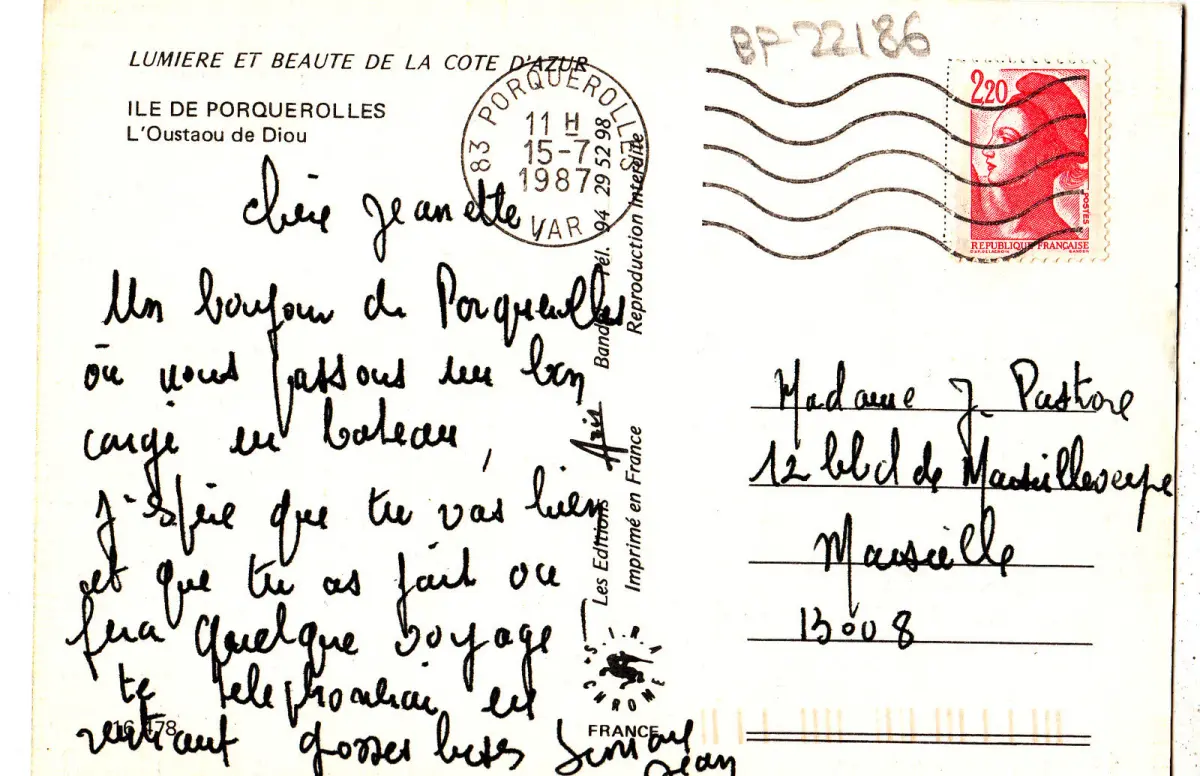 BP-22186
LUMIERE ET BEAUTE DE LA COTE D'AZUR
ILE DE PORQUEROLLES
L'Oustaou de Diou
83 PORQUEROLLES
11 H
15-7
1987
VAR
2,20
POSTES
REPUBLIQUE FRANÇAISE
chère Jeanette
Un bonjour de Porquerolles
où nous passons un bon
congé en bateau,
j'espère que tu vas bien
et que tu as fait ou
fera quelque voyage
te telephonerai en
rentrant grosses bises Simone
Jean
16 178
Les Editions Aris Bandol Tél. 94 29 52 98
Imprimé en France Reproduction interdite
"S.I.R.A.
CHROME"
FRANCE
Madame J. Pastore
12 bld de Marseilleveyre
Marseille
13008